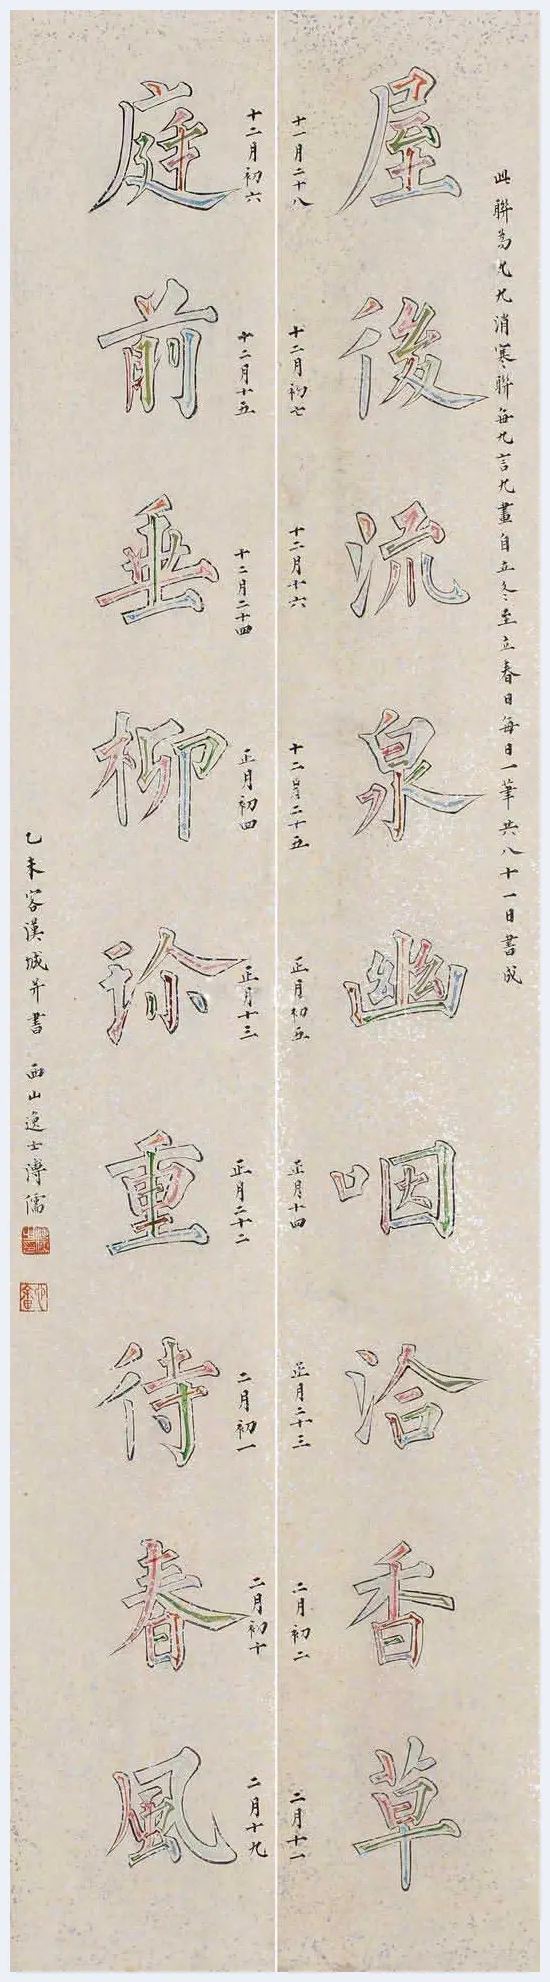 此聯為九九消寒聯每九言九畫自立冬至立春日每日一筆共八十一日書成
屋後流泉幽咽洽香草
十一月二十八
十二月初七
十二月十六
十二月二十五
正月初五
正月十四
正月二十三
二月初二
二月十一
十二月初六
十二月十五
十二月二十四
正月初四
正月十三
正月二十二
二月初一
二月初十
二月十九
庭前垂柳珍重待春風
乙未客漢城并書 西山逸士溥儒